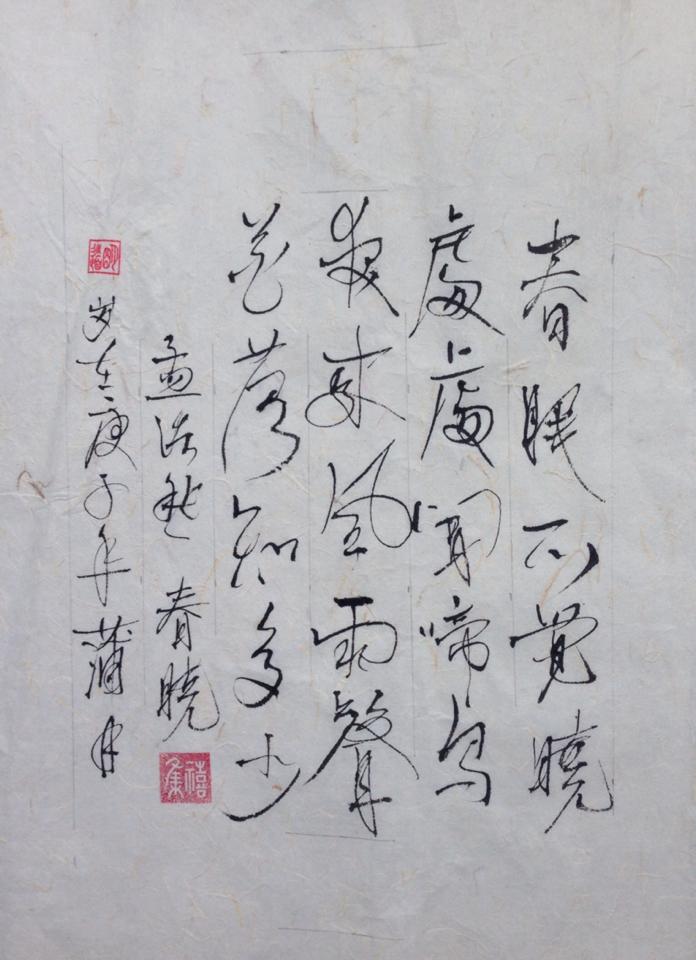 春眠不覺曉
處處聞啼鳥
夜來風雨聲
花落知多少
孟浩然 春曉
禧集
岁在庚子年蒲月